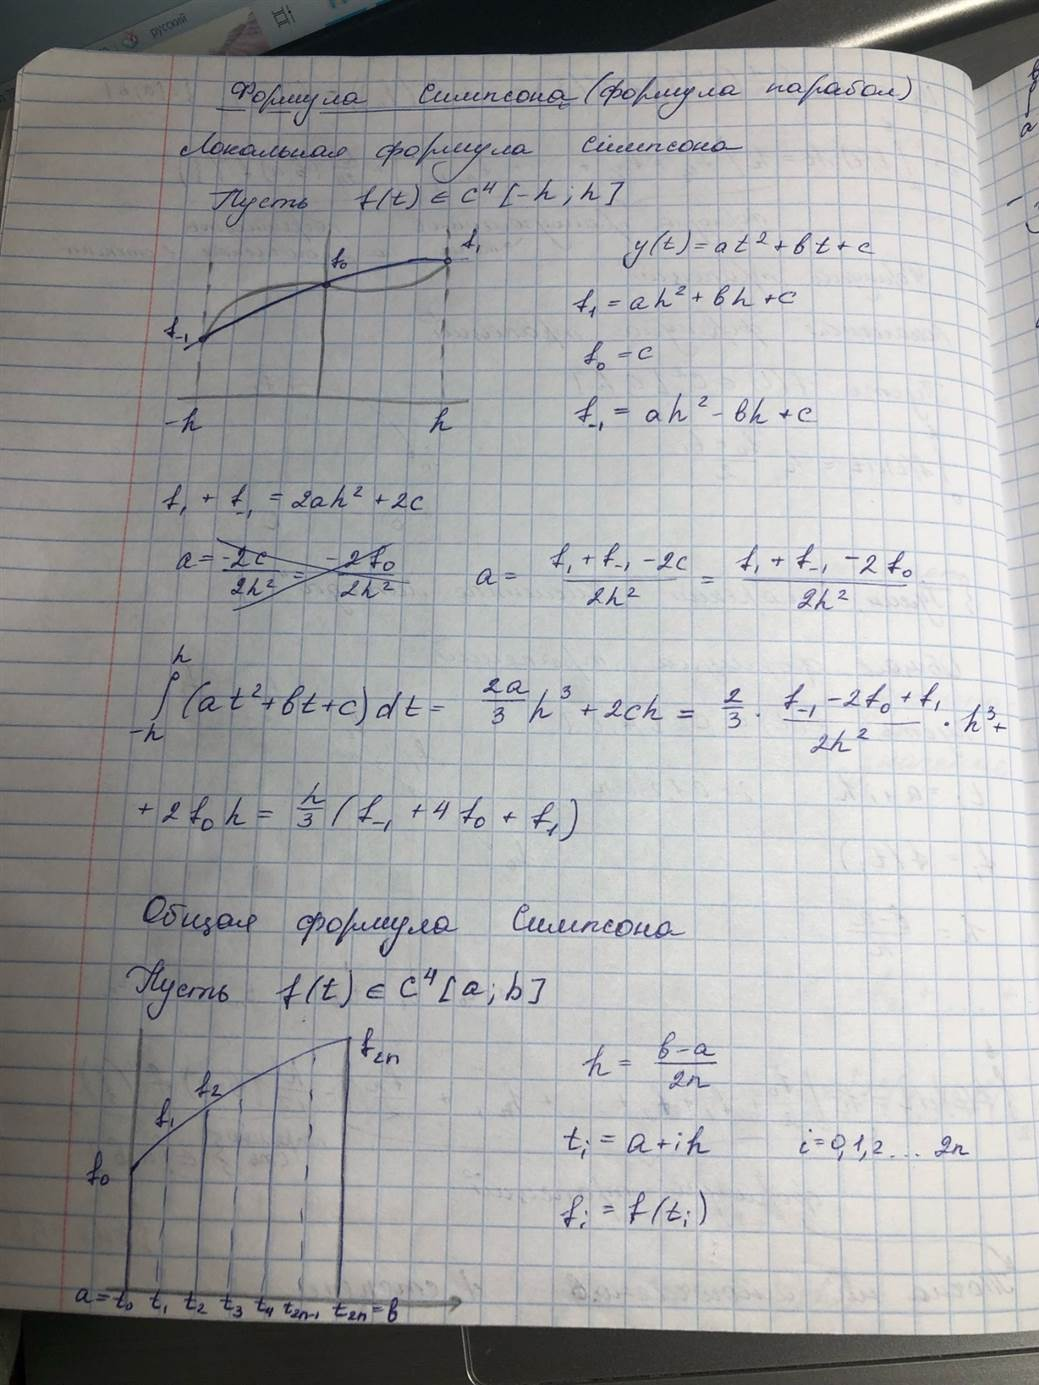 русский
Формула Симпсона (формула парабол)
Локальная формула Симпсона
Пусть f(t) ∈ C⁴ [-h; h]
f₁
f₀
f₋₁
-h h
y(t) = at² + bt + c
f₁ = ah² + bh + c
f₀ = c
f₋₁ = ah² - bh + c
f₁ + f₋₁ = 2ah² + 2c
a = -2c/2h² = -2f₀/2h² a = (f₁ + f₋₁ - 2c)/2h² = (f₁ + f₋₁ - 2f₀)/2h²
∫₋ₕʰ (at² + bt + c) dt = 2a/3 h³ + 2ch = 2/3 · (f₋₁ - 2f₀ + f₁)/2h² · h³ +
+ 2f₀h = h/3 (f₋₁ + 4f₀ + f₁)
Общая формула Симпсона
Пусть f(t) ∈ C⁴ [a; b]
f₂ₙ
f₂
f₁
f₀
a = t₀ t₁ t₂ t₃ t₄ t₂ₙ₋₁ t₂ₙ = b
h = (b-a)/2n
tᵢ = a + ih i = 0,1,2 ... 2n
fᵢ = f(tᵢ)